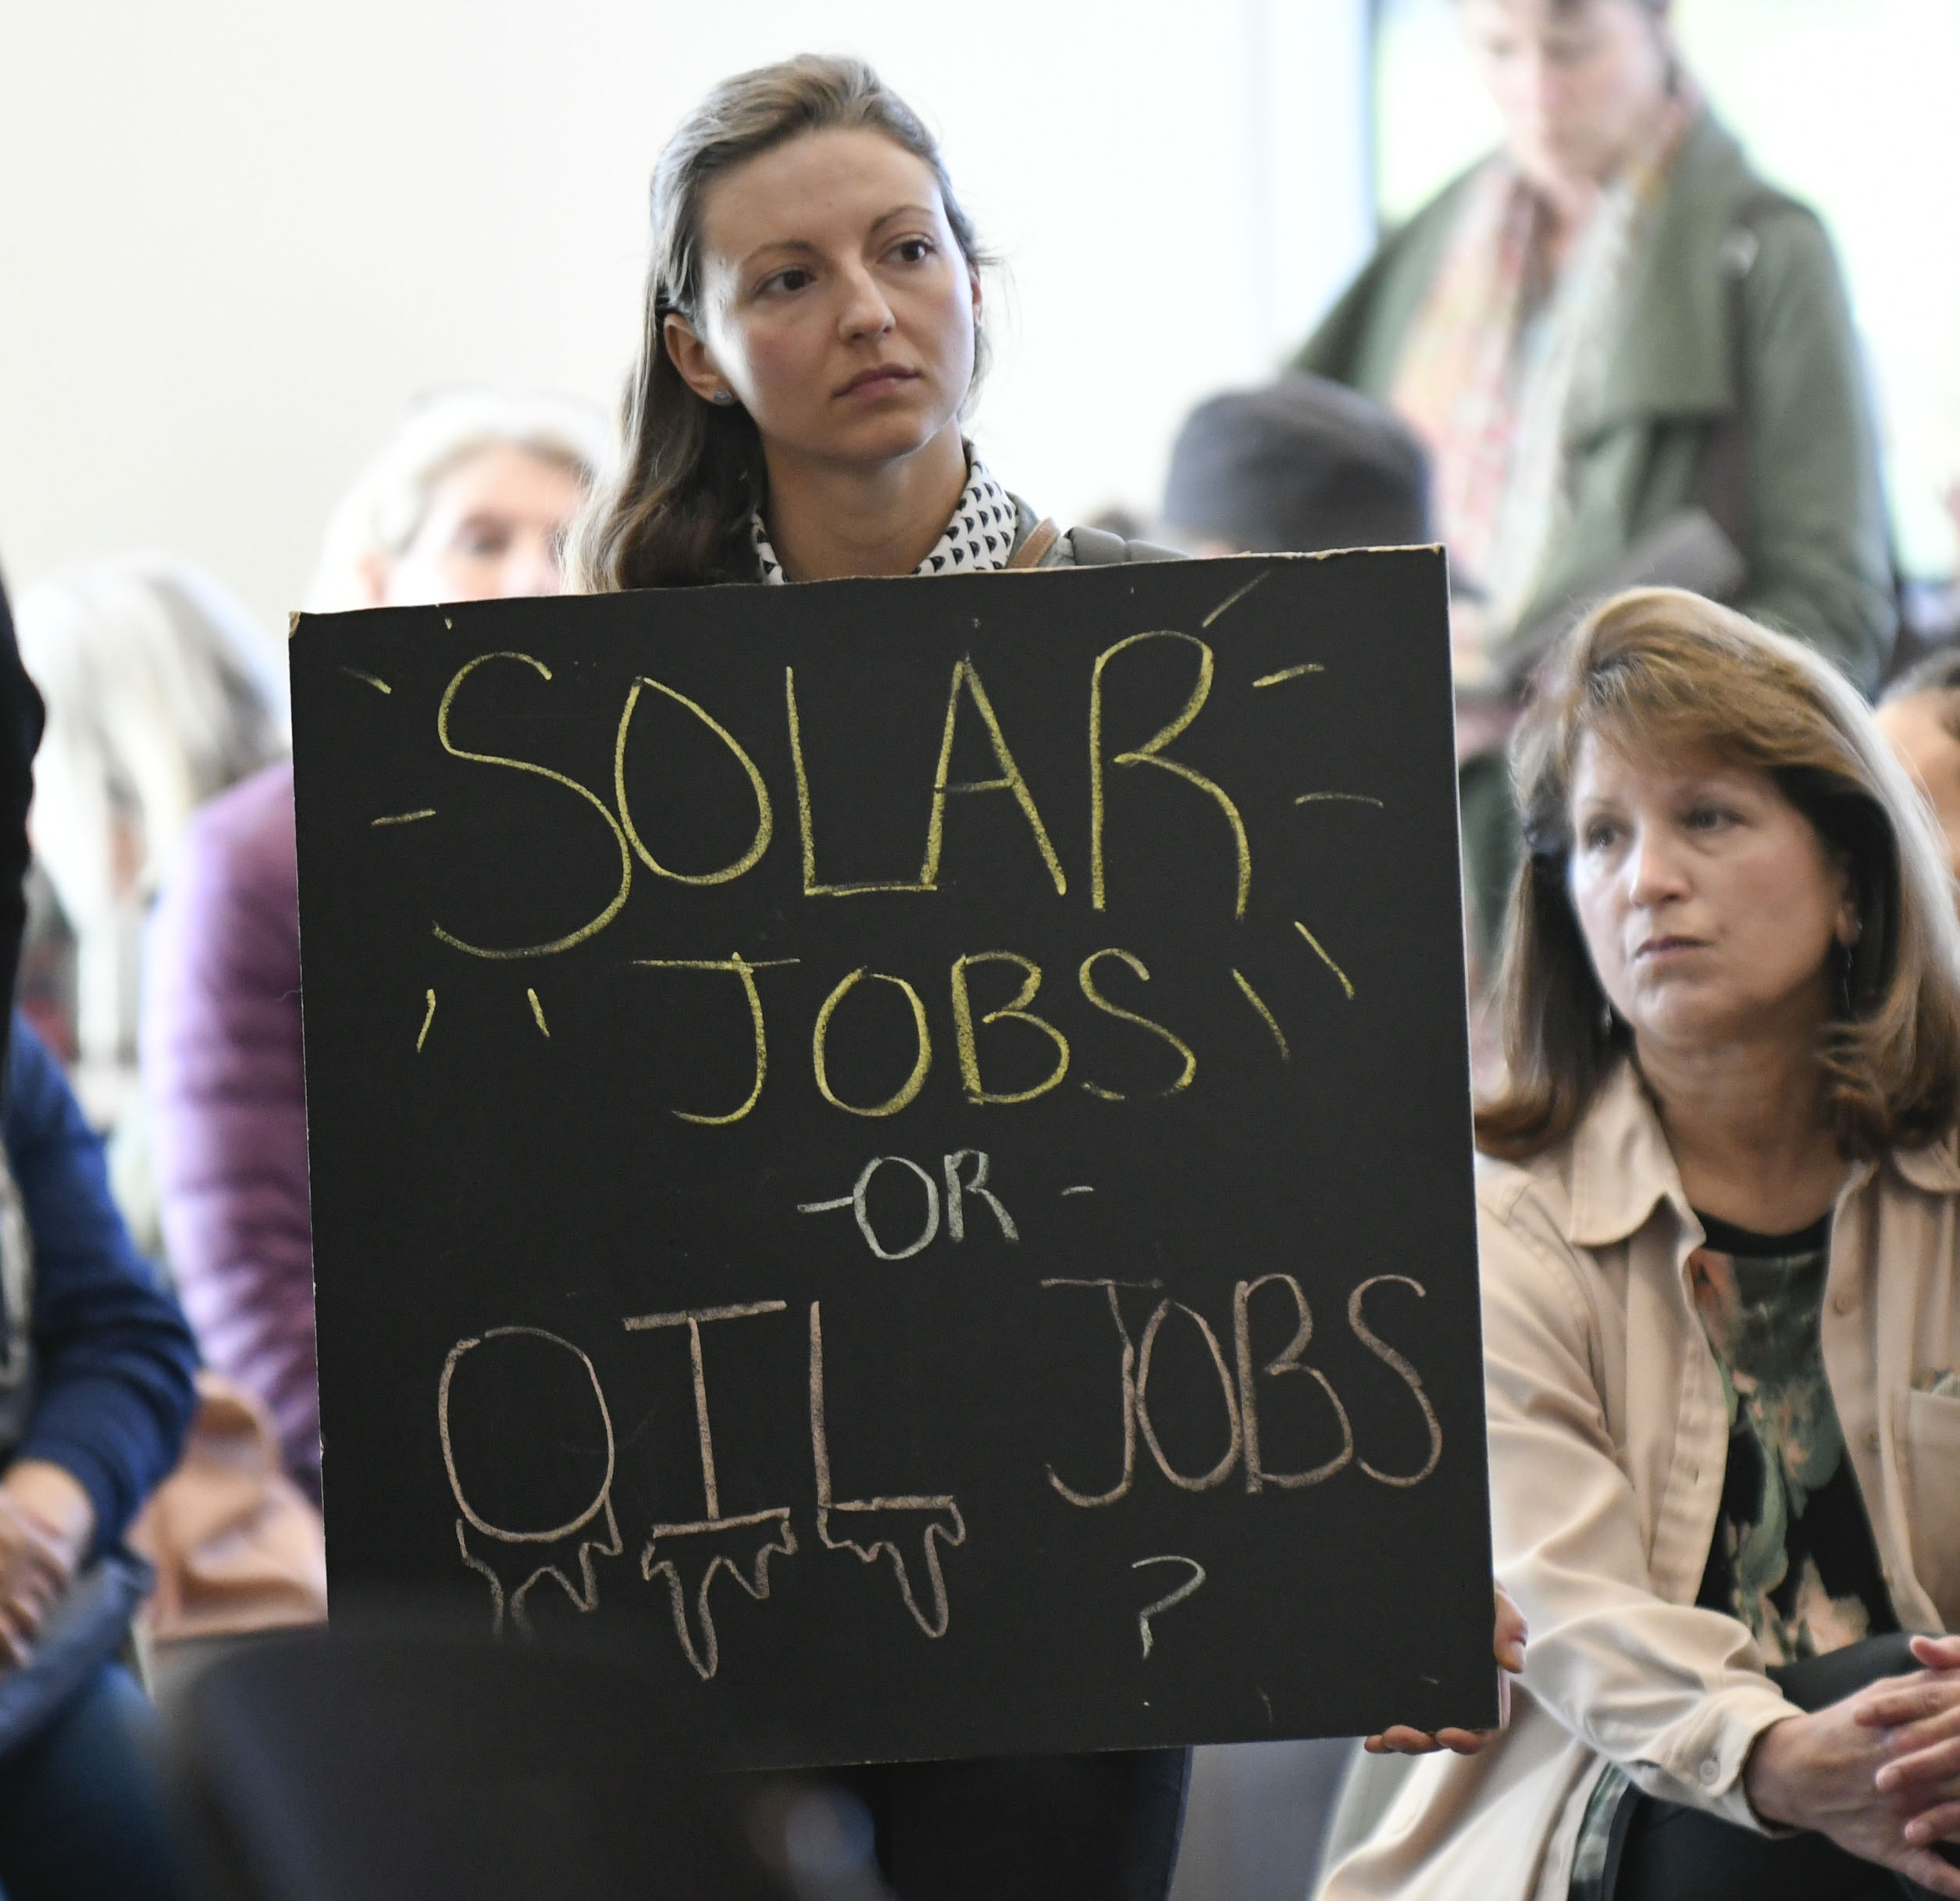 SOLAR
JOBS
-OR-
OIL JOBS
?